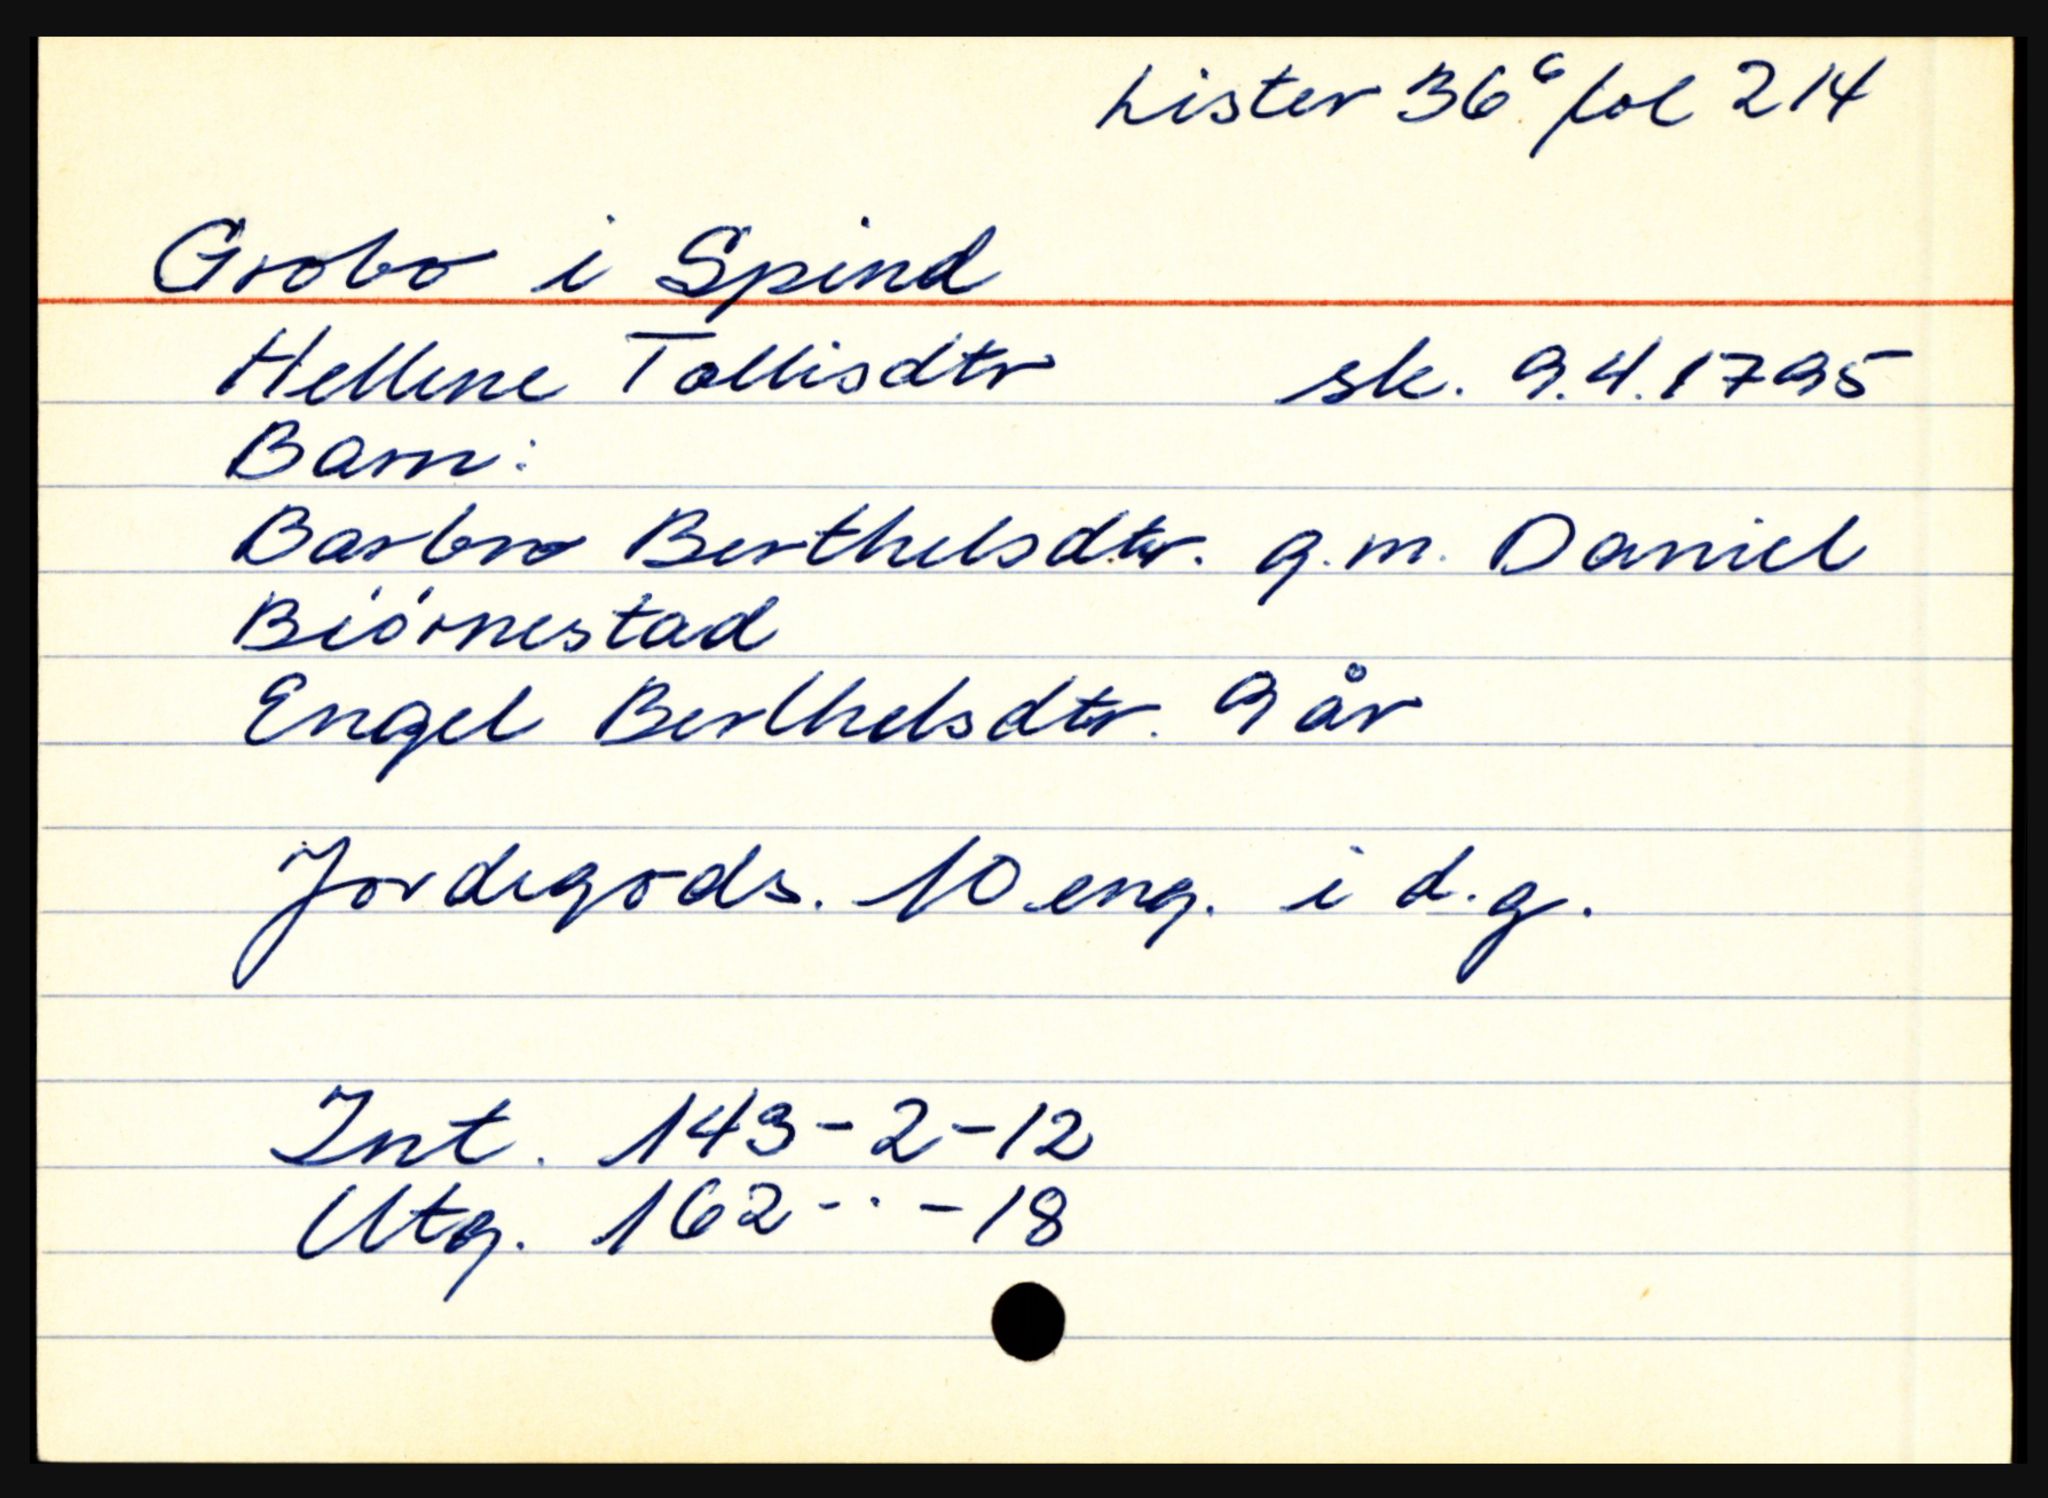 Lister 36c fol 214
Grobo i Spind
Hellene Tollisdtr sk. 9.4.1795
Barn:
Barbro Berthelsdtr. g.m. Daniel
Biörnestad
Engel Berthelsdtr. 9 år
Jordegods. 10 eng. i d.g.
Int. 143-2-12
Utg. 162-·-18